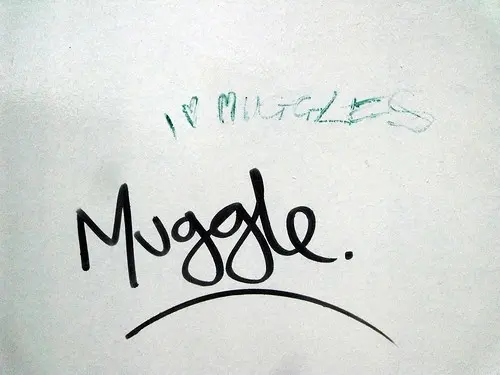 I ♥ MUGGLES
Muggle.